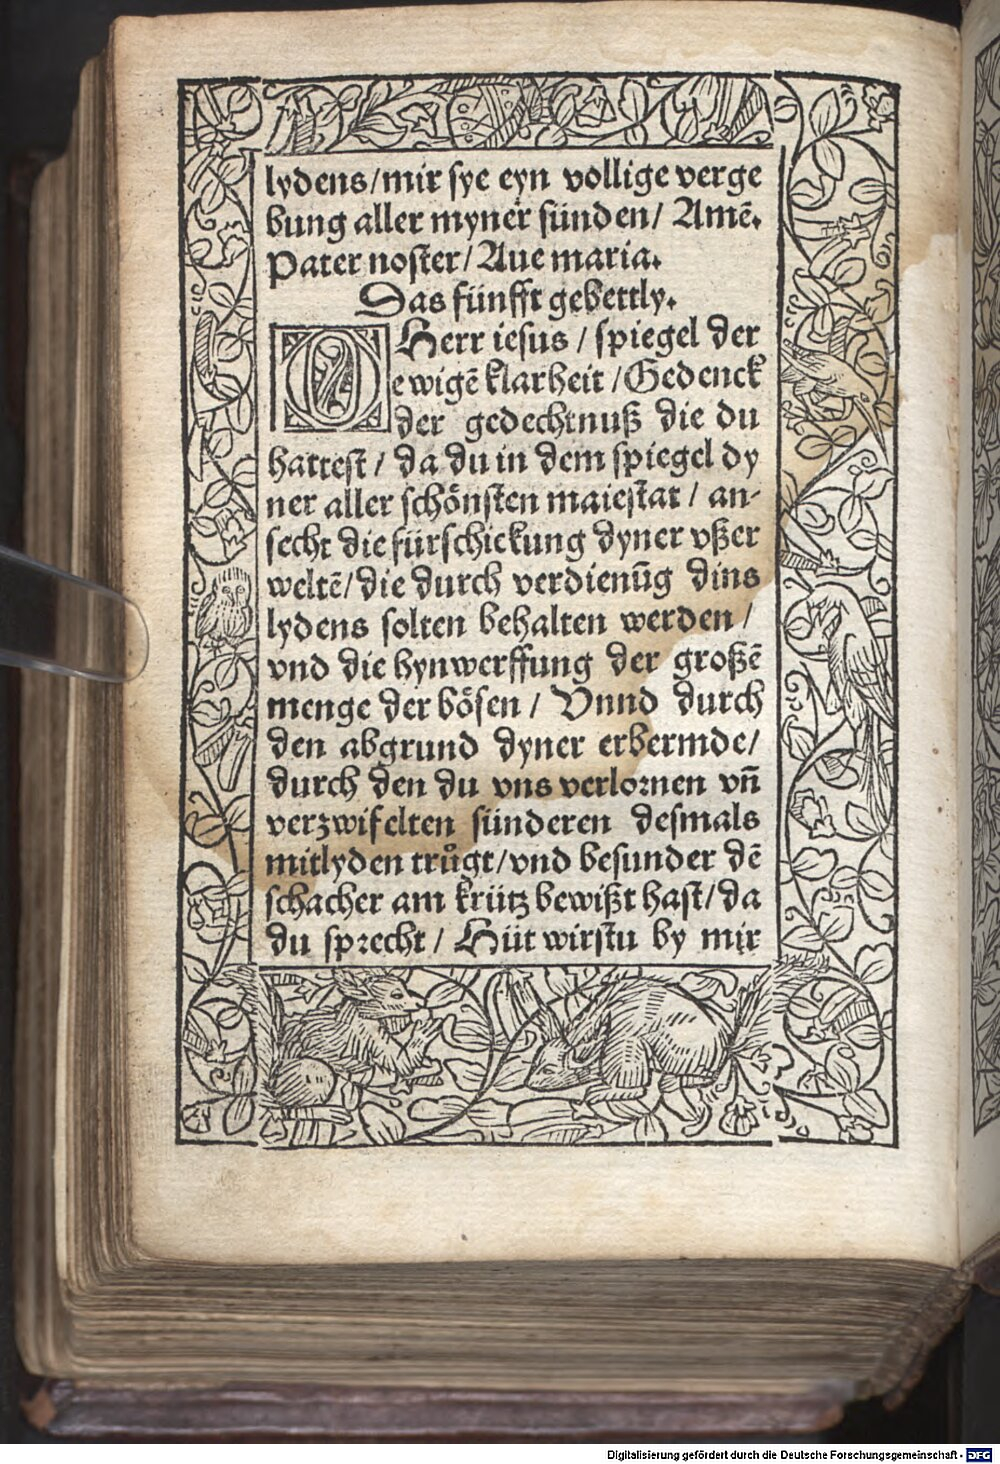 lydens/mir sye eyn vollige verge
bung aller myner sünden/ Amē.
Pater noster/Aue maria.
Das fünfft gebettly.
O Herr iesus / spiegel der
ewigē klarheit /Gedenck
der gedechtnuß die du
hattest / da du in dem spiegel dy
ner aller schönsten maiestat / an-
secht die fürschickung dyner vßer
weltē/die durch verdienūg dins
lydens solten behalten werden /
vnd die hynwerffung der großē
menge der bösen / Vnnd durch
den abgrund dyner erbermde/
durch den du vns verlornen vn̄
verzwifelten sünderen desmals
mitlyden trůgt/vnd besunder dē
schacher am krütz bewißt hast/da
du sprecht / Hüt wirstu by mir
Digitalisierung gefördert durch die Deutsche Forschungsgemeinschaft - DFG